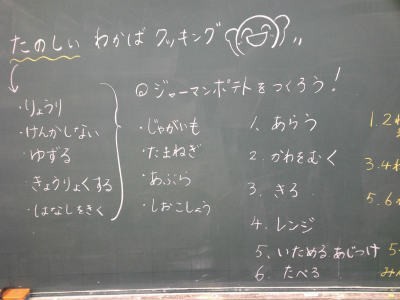 たのしい わかば クッキング
・りょうり
・けんかしない
・ゆずる
・きょうりょくする
・はなしをきく
◎ジャーマンポテトをつくろう!
・じゃがいも
・たまねぎ
・あぶら
・しおこしょう
1. あらう
2. かわをむく
3. きる
4. レンジ
5. いためる あじつけ
6. たべる
1.2
3.4
5.6
5
みん